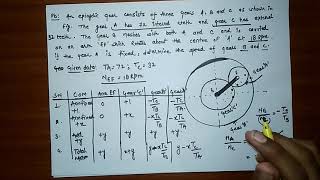 Pb: An epicyclic gear consists of three gears A, B and C as shown in
fig. The gear A has 72 internal teeth and gear C has external
32 teeth. The gear B meshes with both A and C and is carried
on an arm 'EF' which rotates about the centre of 'A' at 18 RPM
if the gear A is fixed, determine the speed of gears B and C.
Given data: TA = 72; TC = 32
NEF = 18 RPM
S.N Com Arm EF Gear C Gear B Gear A
1. 0 +1 -TC/TB -TC/TA
2. 0 +x -xTC/TB -xTC/TA
3. +y +y +y +y +y
4. Total +y x+y y-xTC/TB y-xTC/TA
Gear 'A'
Gear 'C'
Gear 'B'
NB/NC = -TC/TB
NA/NC